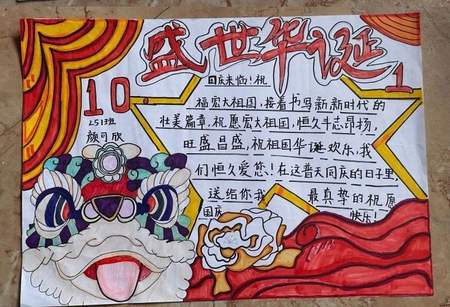 盛世华诞
10
1
2513班
颜可欣
国庆来临！祝
福宏大祖国，接着书写新新时代的
壮美篇章，祝愿宏大祖国，恒久斗志昂扬，
旺盛昌盛，祝祖国华诞欢乐，我
们恒久爱您！在这普天同庆的日子里，
送给你我 最真挚的祝愿
国庆 快乐！